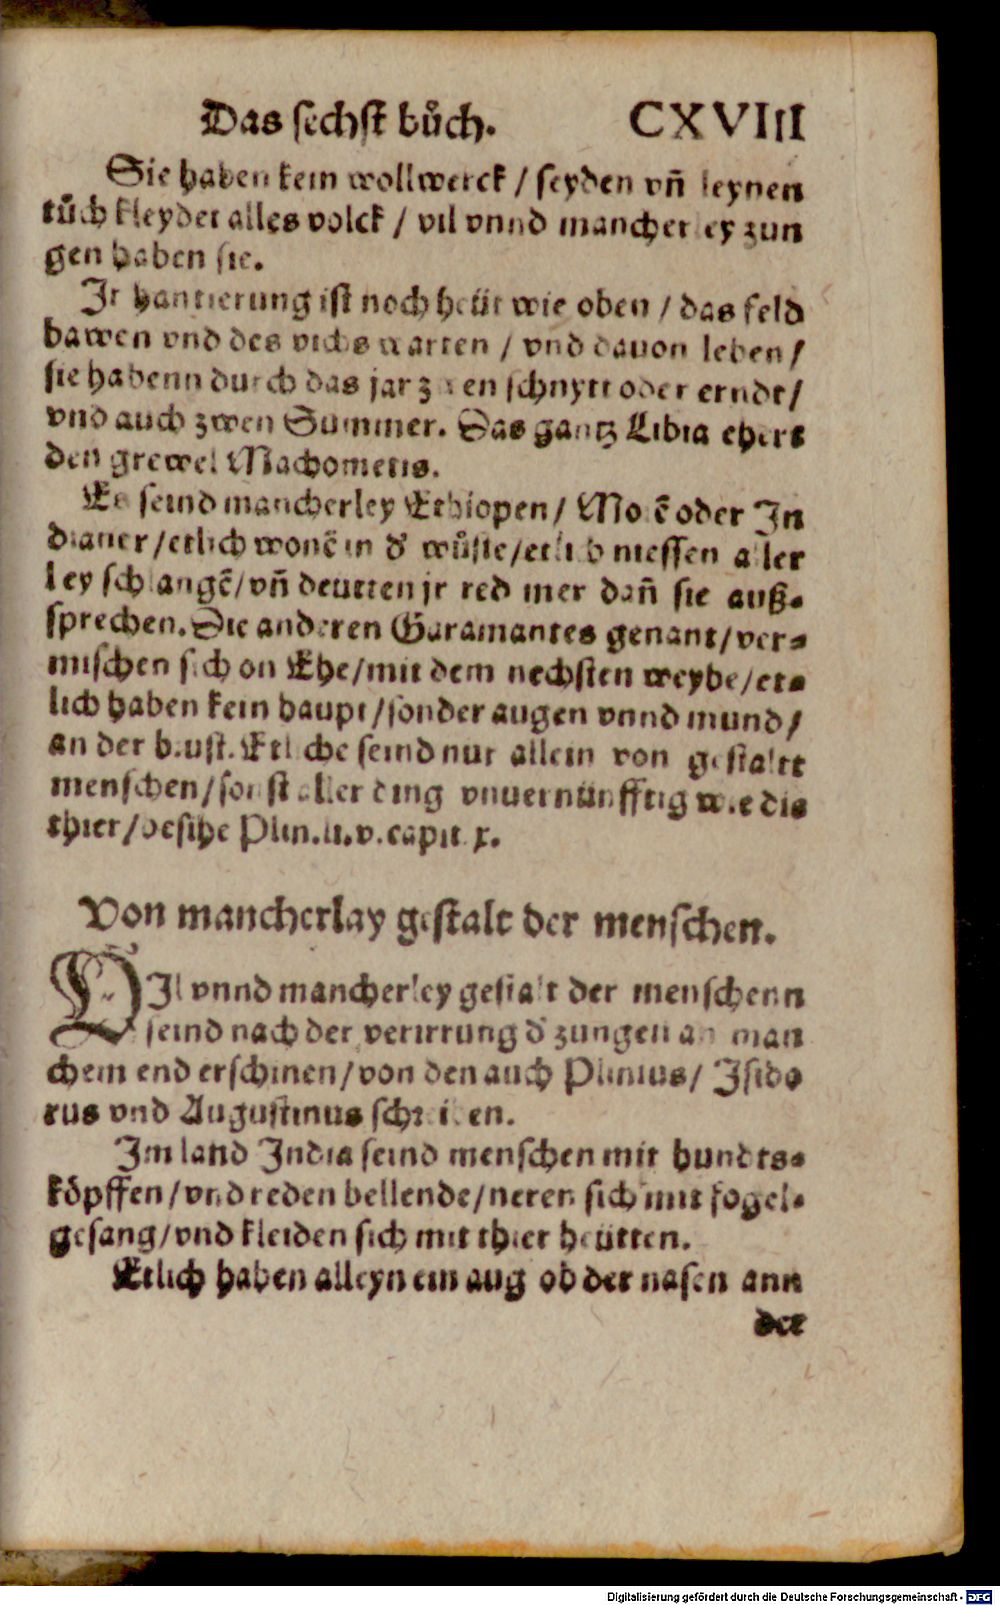 Das sechst bůch. CXVIII
Sie haben kein wollwerck / seyden vñ leynen
tůch kleydet alles volck / vil vnnd mancherley zun
gen haben sie.
Jr hantierung ist noch heüt wie oben / das feld
bawen vnd des viehs warten / vnd dauon leben /
sie habenn durch das jar zwen schnytt oder erndt /
vnd auch zwen Summer. Das gantz Libia ehert
den grewel Machometis.
Es seind mancherley Ethiopen / Morẽ oder In
dianer / etlich wonẽ in d' wůste / etlich niessen aller
ley schlangẽ / vñ deutten jr red mer dañ sie auß-
sprechen. Die anderen Garamantes genant / ver-
mischen sich on Ehe / mit dem nechsten weybe / et-
lich haben kein haupt / sonder augen vnnd mund /
an der brust. Etliche seind nur allein von gestaltt
menschen / sonst aller ding vnuernünfftig wie die
thier / besihe Plin. li. v. capit. x.
Von mancherlay gestalt der menschen.
VIl vnnd mancherley gestalt der menschenn
seind nach der verirrung d' zungen an man
chem end erschinen / von den auch Plinius / Isido
rus vnd Augustinus schreiben.
Im land India seind menschen mit hundts-
köpffen / vnd reden bellende / neren sich mit fogel-
gesang / vnd kleiden sich mit thier heütten.
Etlich haben alleyn ein aug ob der nasen ann
der
Digitalisierung gefördert durch die Deutsche Forschungsgemeinschaft - DFG